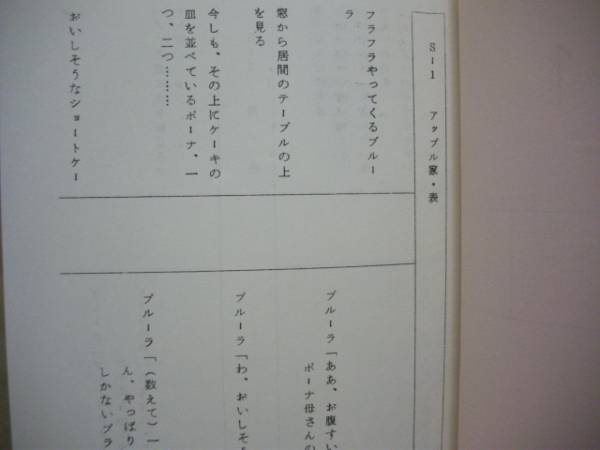 S-1 アップル家・表
フラフラやってくるブルー
ラ
窓から居間のテーブルの上
を見る
今しも、その上にケーキの
皿を並べているボーナ、一
つ、二つ………
おいしそうなショートケー
ブルーラ「ああ、お腹すい
ボーナ母さんの
ブルーラ「わ、おいしそ
ブルーラ「（数えて）一
ん、やっぱり
しかないブラ